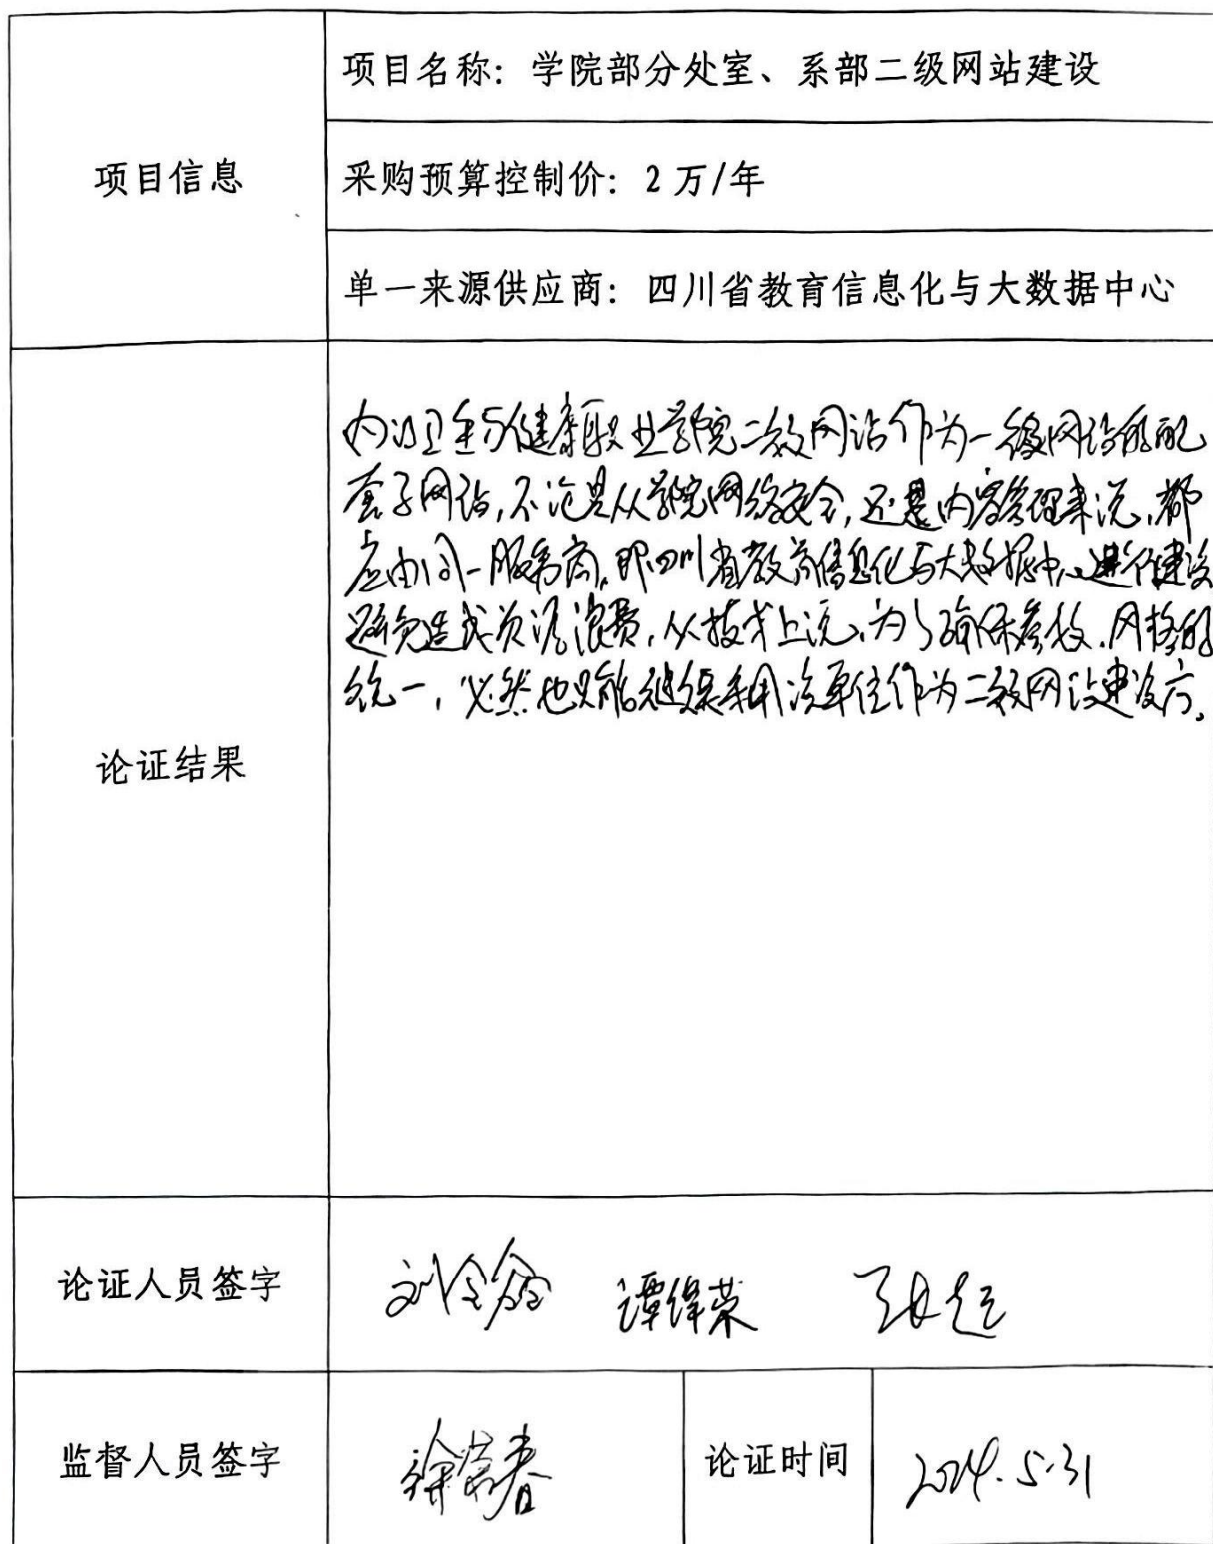 项目名称：学院部分处室、系部二级网站建设
项目信息
采购预算控制价：2万/年
单一来源供应商：四川省教育信息化与大数据中心
内江卫生与健康职业学院二级网站作为一级网站的配
套子网站，不论是从学院网络安全，还是内容管理来说，都
应由同一服务商，即四川省教育信息化与大数据中心进行建设
避免造成资源浪费，从技术上说，为了确保参数、风格的
统一，必然也只能继续采用该单位作为二级网站建设方。
论证结果
论证人员签字
谭绎荣 张超
监督人员签字
论证时间
2024.5.31